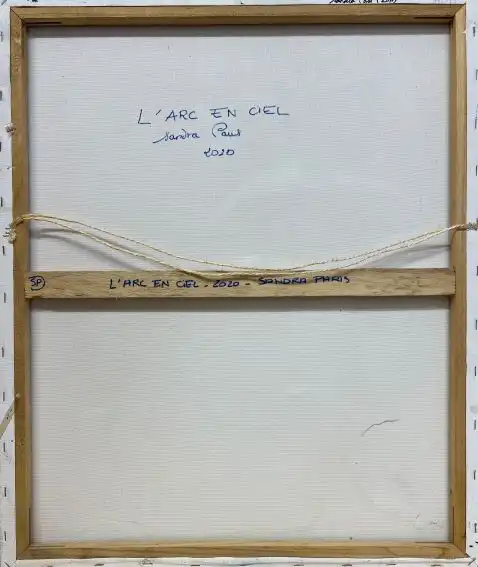 L'ARC EN CIEL
Sandra Paris
2020
SP
L'ARC EN CIEL. 2020 - SANDRA PARIS